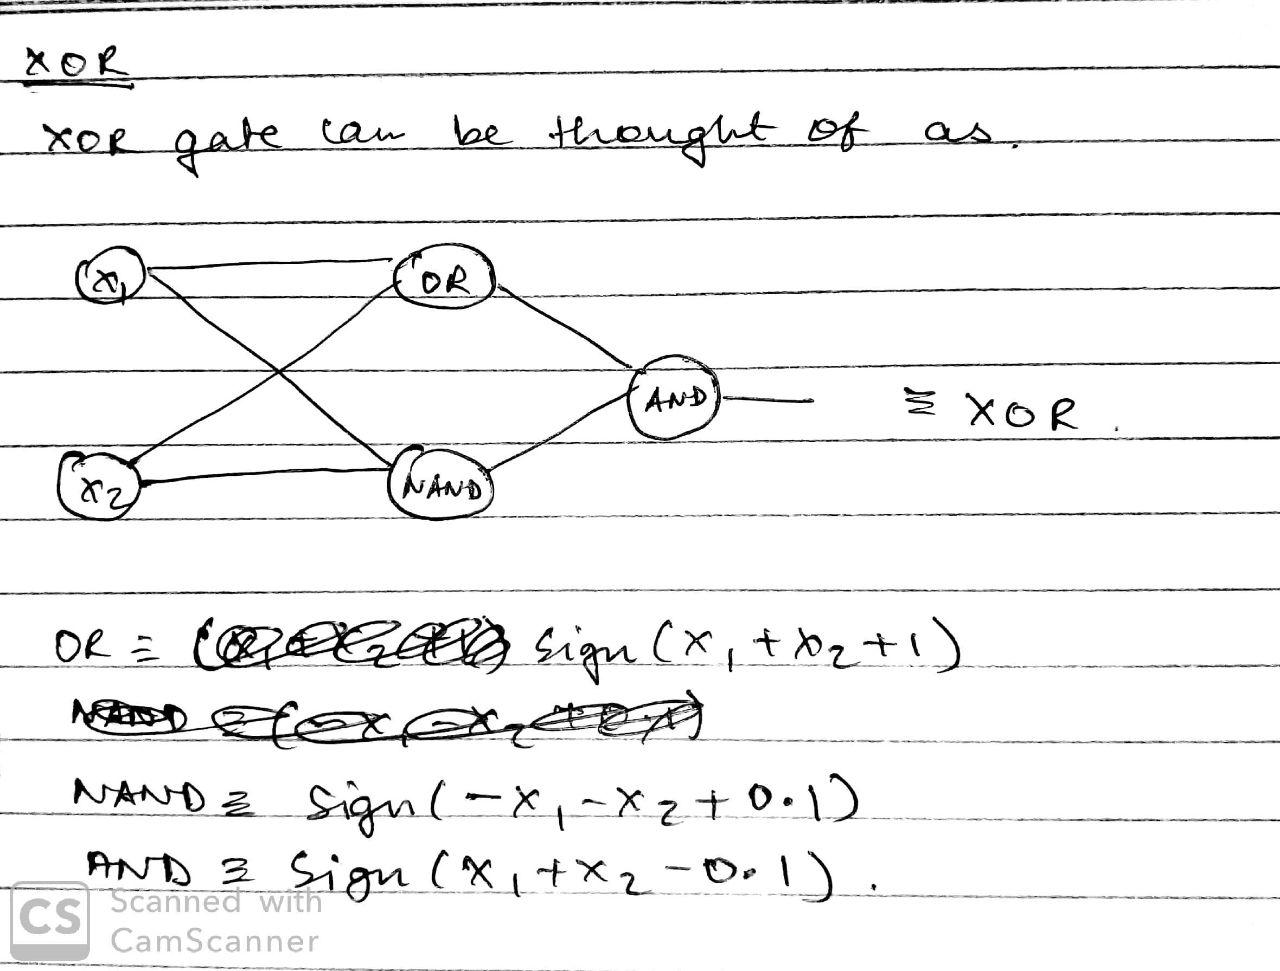 XOR
XOR gate can be thought of as.
x₁ OR
AND ≡ XOR.
x₂ NAND
OR = sign(x₁ + x₂ + 1)
NAND ≡ sign(-x₁ - x₂ + 0.1)
AND ≡ sign(x₁ + x₂ - 0.1).
CS Scanned with
CamScanner